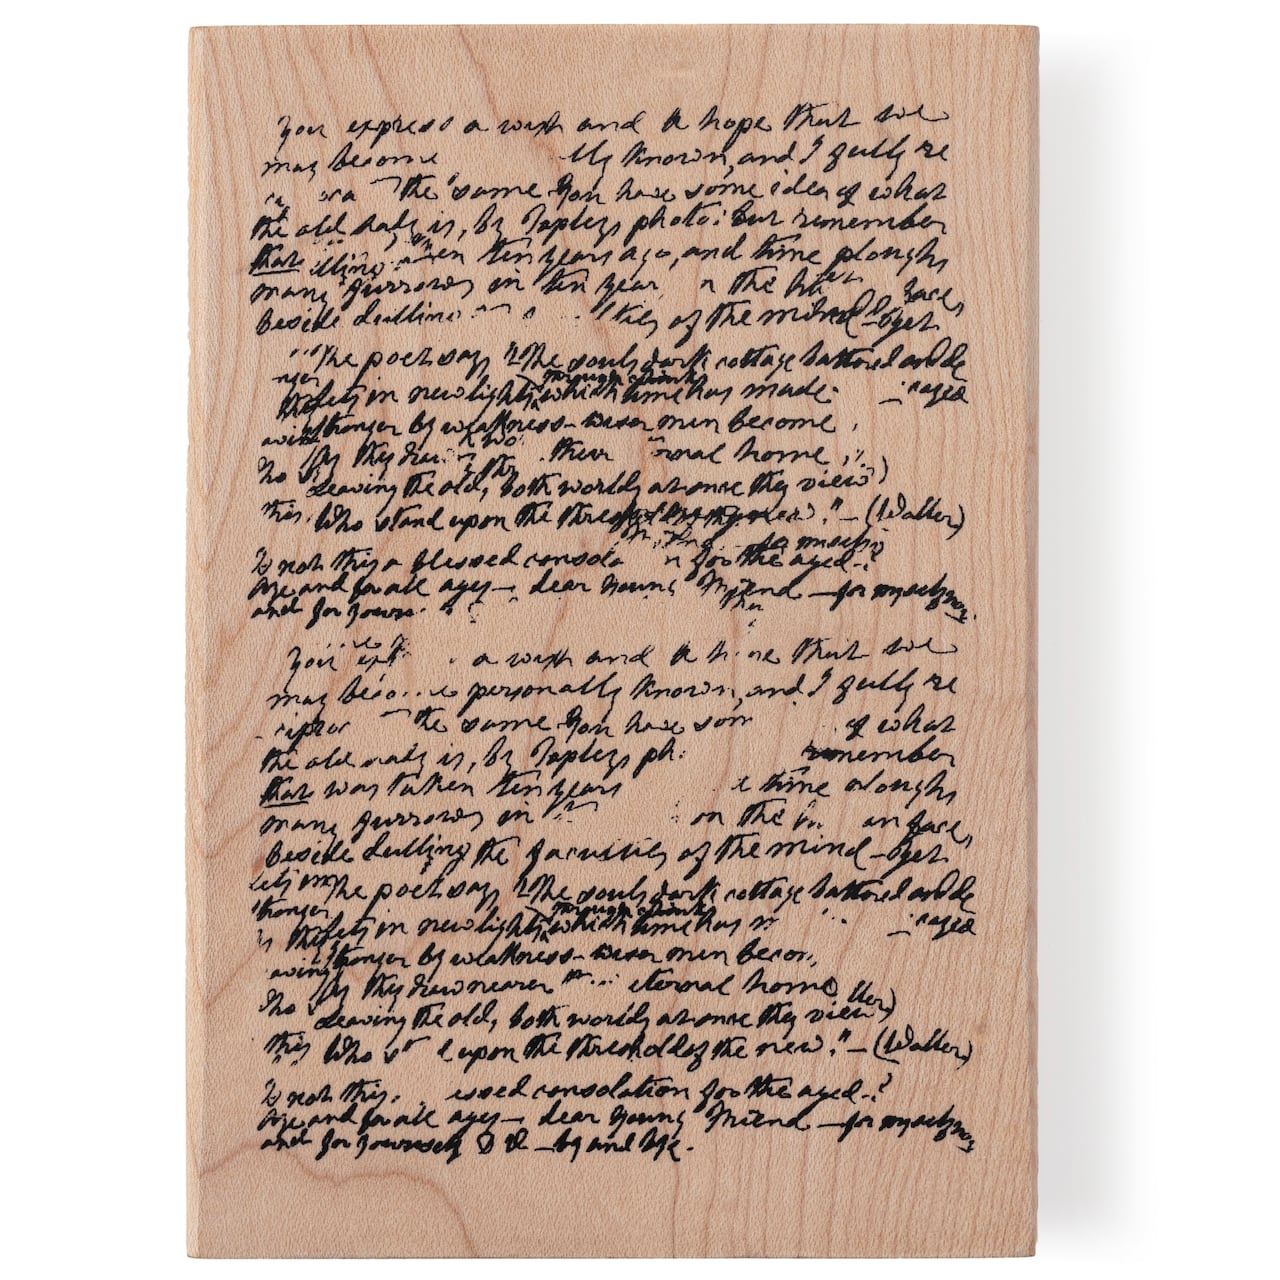 You express a wish and a hope that we
may become lly known, and I fully re
the same You have some idea of what
the old lady is, by Tapleys photo: But remember
that ten years ago, and time ploughs
many furrows in ten year n the face,
beside dulling ties of the mind
The poet says "The souls dark cottage battered and de
lets in new light through chinks which time has made: caged
stronger by weakness - wiser men become
As they their rnal home
Leaving the old, both worlds at once they view
this. Who stand upon the new." - (Waller)
Is not this a blessed consola n for the aged -?
Age and for all ages - dear Young Friend - for myself
and for yours
You a wish and that we
may become personally known, and I fully re
the same You have som of what
the old lady is, by Tapleys ph remember
that was taken ten years time ploughs
many furrows in on the an face,
beside dulling the faculties of the mind
The poet says "The souls dark cottage battered and de
lets in new light through chinks which time has caged
stronger by weakness - wiser men becom
As they draw nearer eternal home
Leaving the old, both worlds at once they view
this Who upon the threshold of the new." - (Waller)
Is not this essed consolation for the aged -?
Age and for all ages - dear Young Friend - for myself
and for yourself - by and bye.